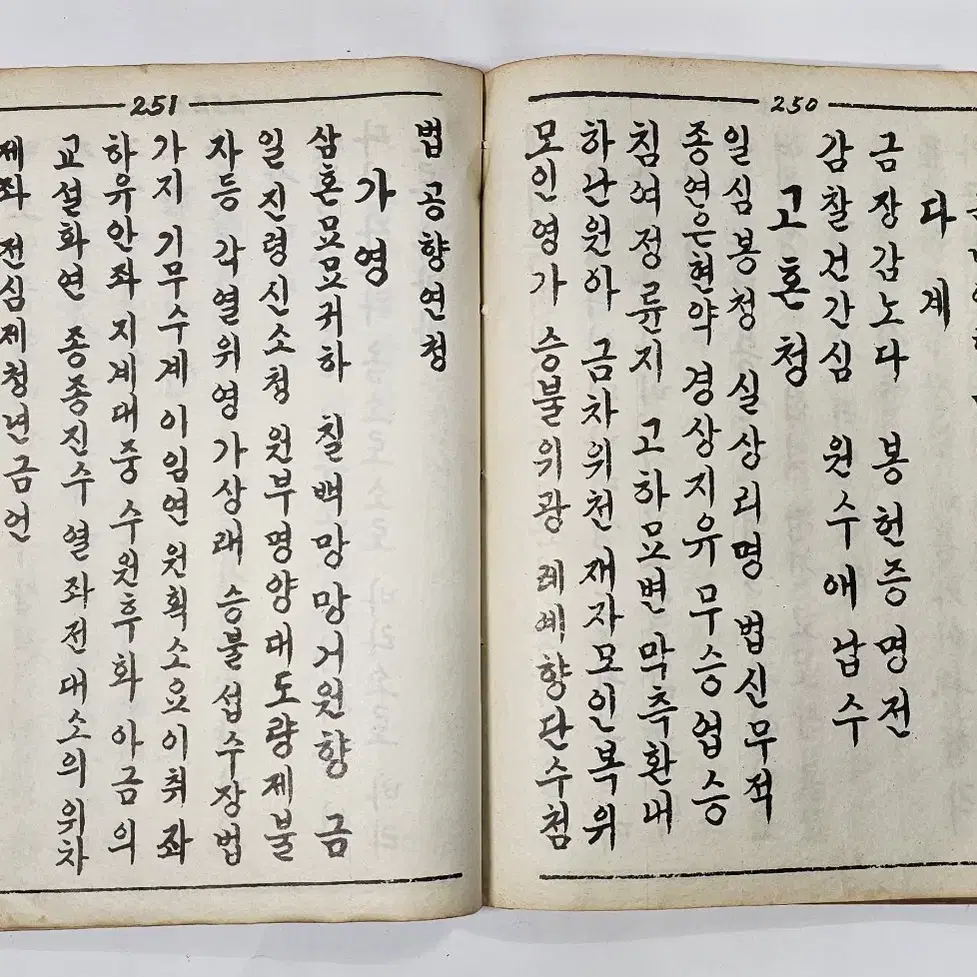 250
다 계
금장감노다 봉헌증명전
감찰건간심 원수애납수
고혼청
일심봉청 실상리명 법신무적
종연은현약 경상지유 무승업승
침여정륜지 고하묘변 막측환내
하난원아 금차위천 재자모인복위
모인영가 승불위광 례예향단수첨
251
법공향연청
가영
삼혼묘묘귀하 칠백망망거원향 금
일진령신소청 원부명양대도량제불
자등 각열위영가상래 승불섭수장법
가지 기무수계 이임연 원획소요이취좌
하유안좌 지계대중 수원후화 아금의
교설화연 종종진수 열좌전 대소의위차
제좌 전심제청년금언